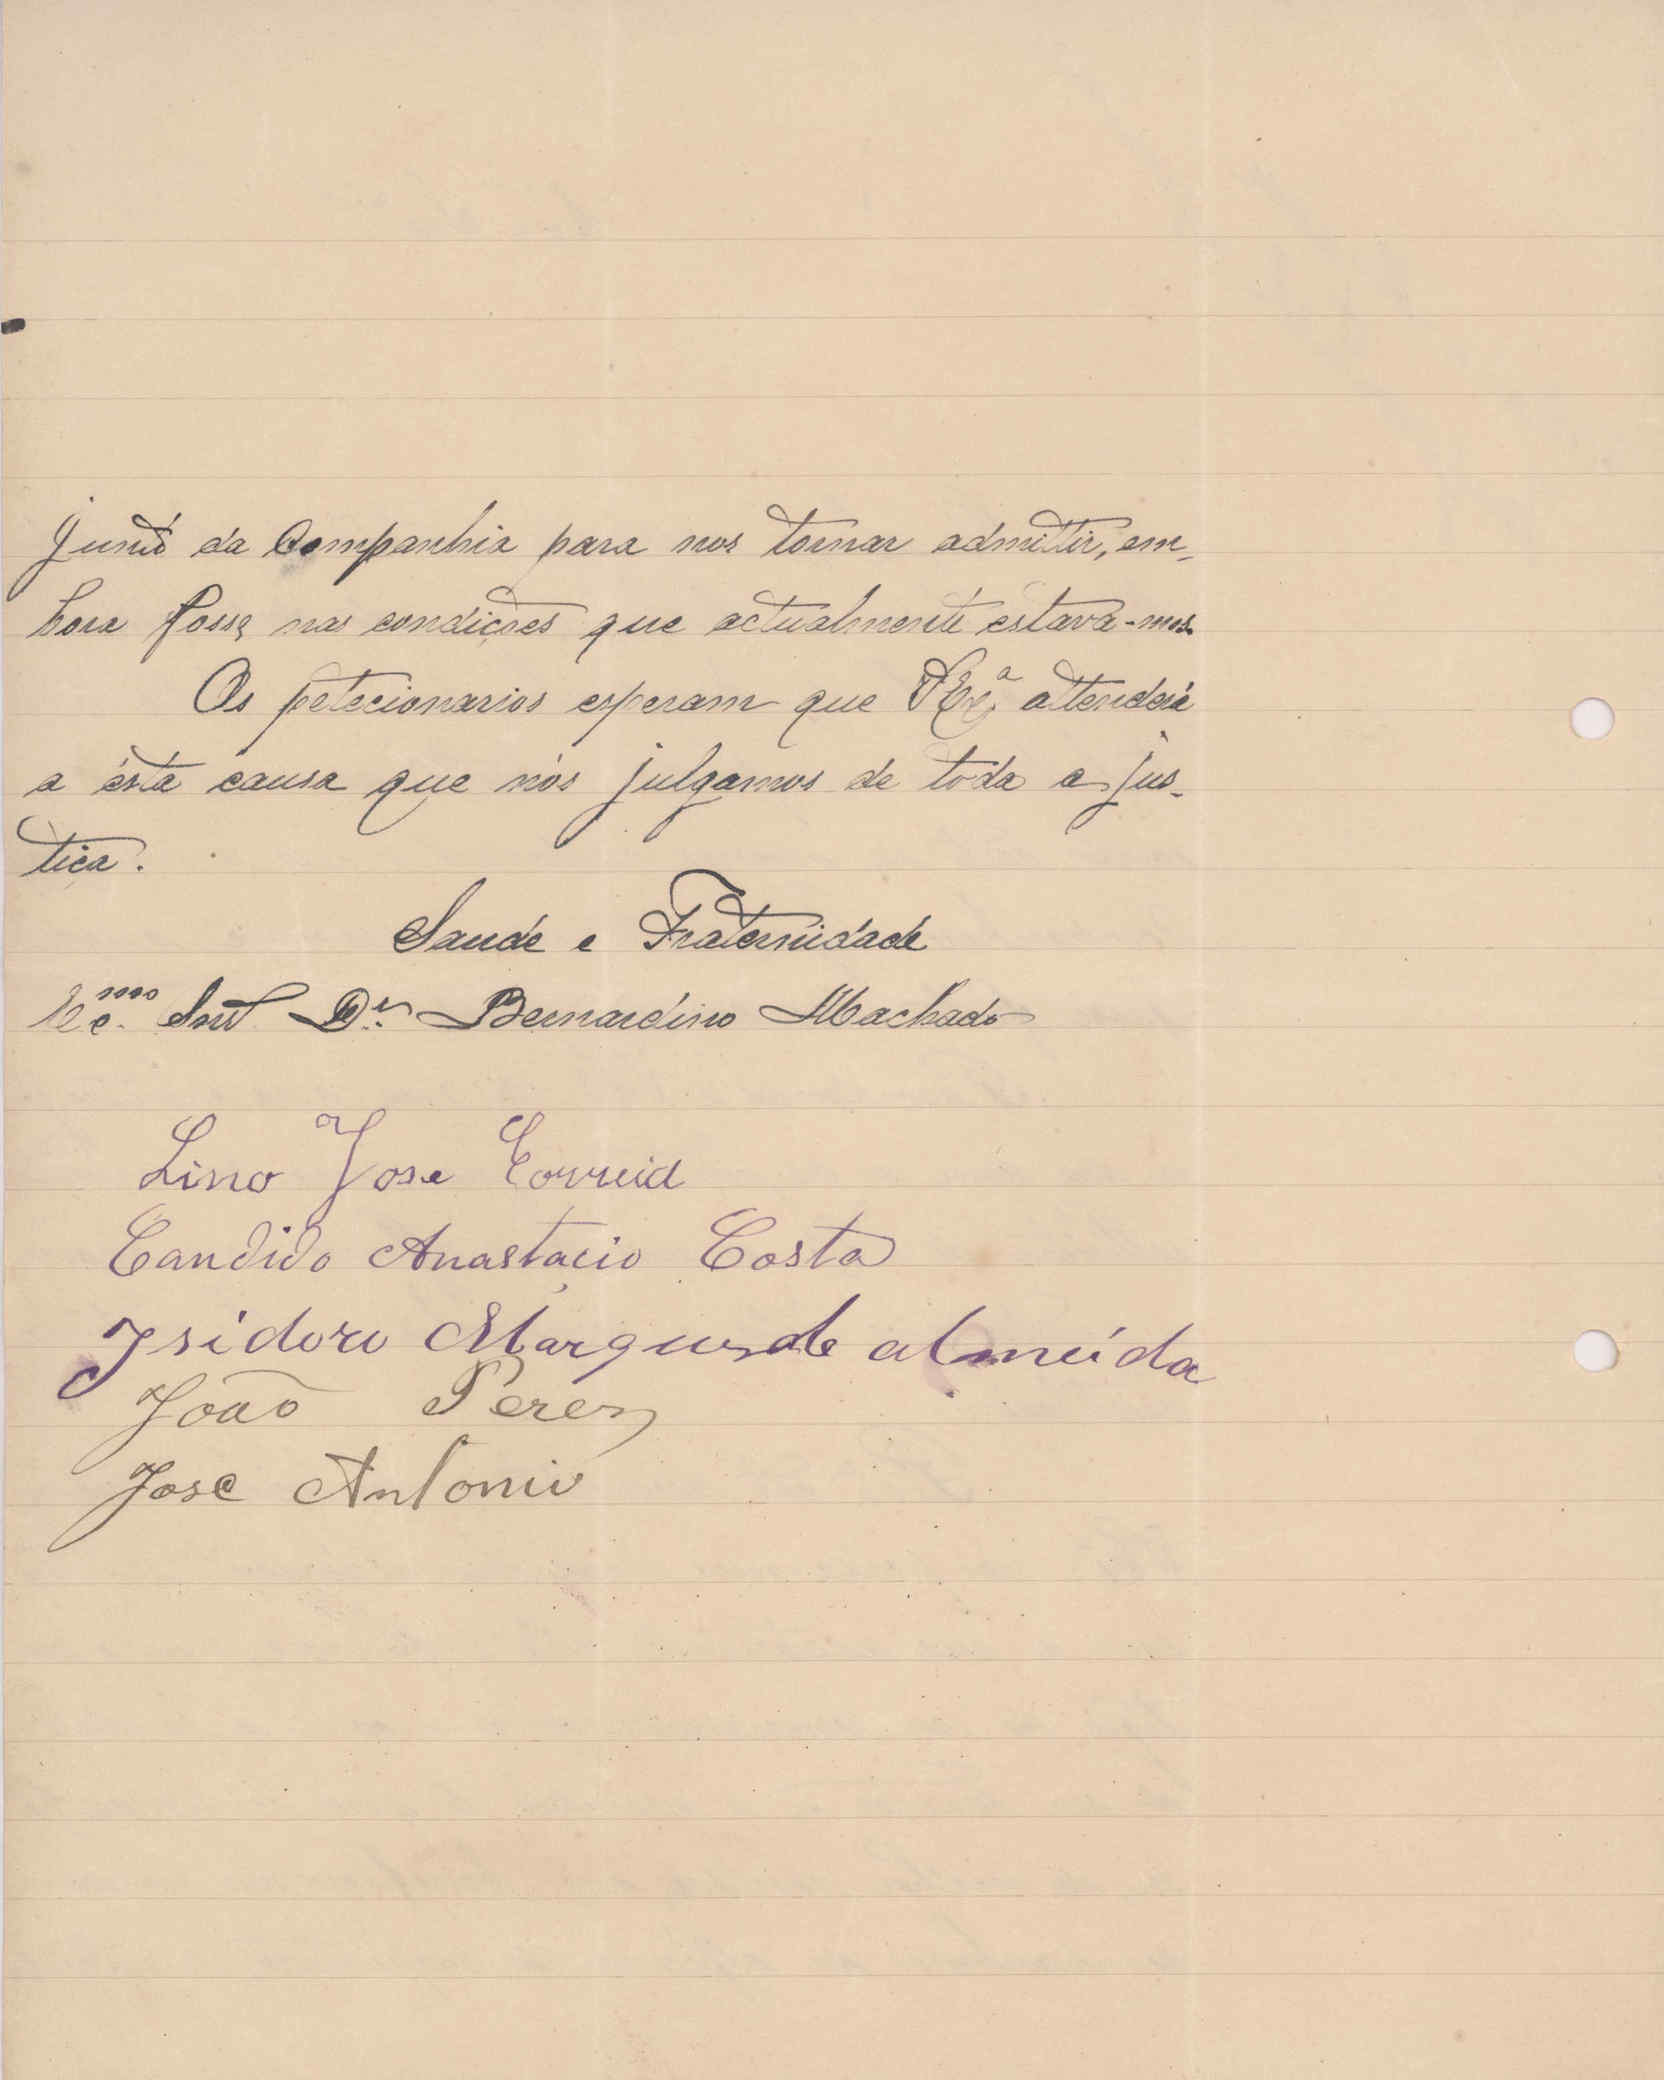 junto da Companhia para nos tornar admittir, em-
bora fosse nas condicões que actualmente estava-mos.
Os petecionarios esperam que V Exª attenderá
a ésta causa que nós julgamos de toda a jus-
tiça.
Saude e Fraternidade
Snr Dr. Bernardino Machado
Lino Jose Correia
Candido Anastacio Costa
Isidoro Marques de almeida
João Peres
Jose Antonio